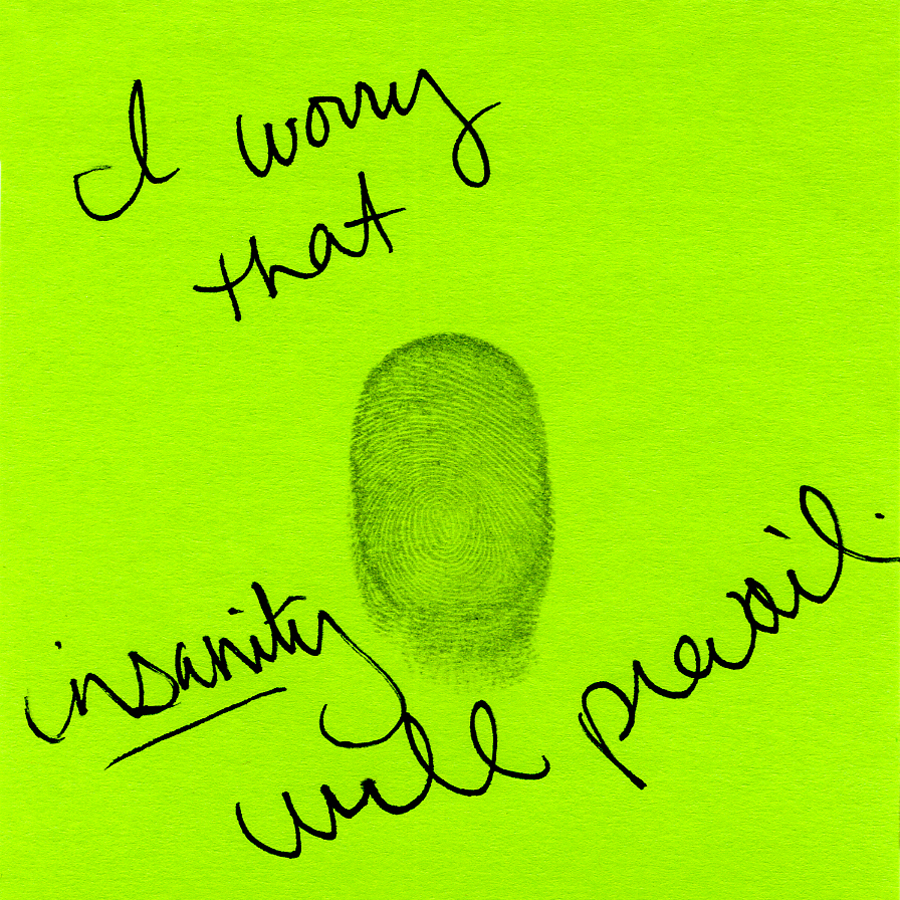 I worry
that
insanity
will prevail.